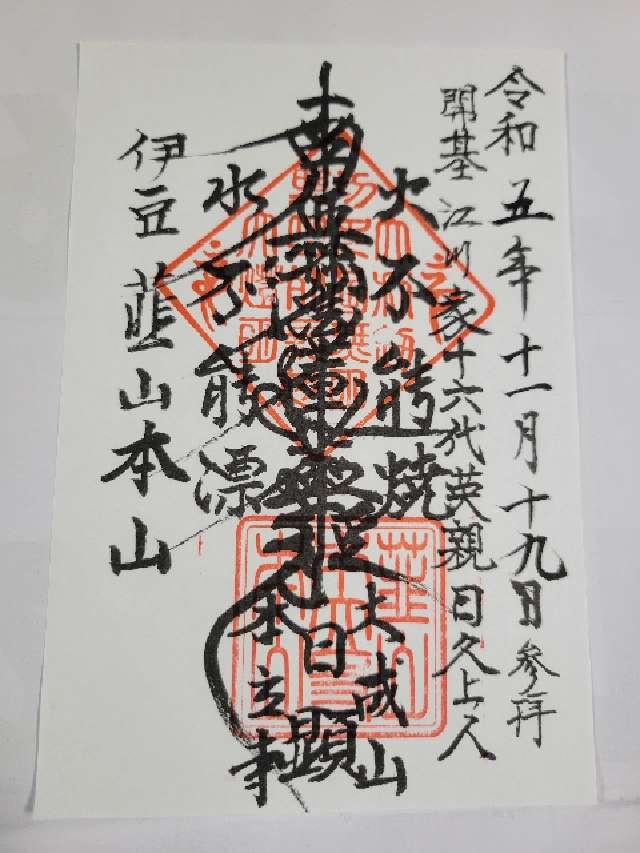 令和五年十一月十九日参拝
開基江川家十六代英親日久上人
火不能焼
大成山
南無妙法蓮華経
日顕
水不能漂
本立寺
伊豆韮山本山